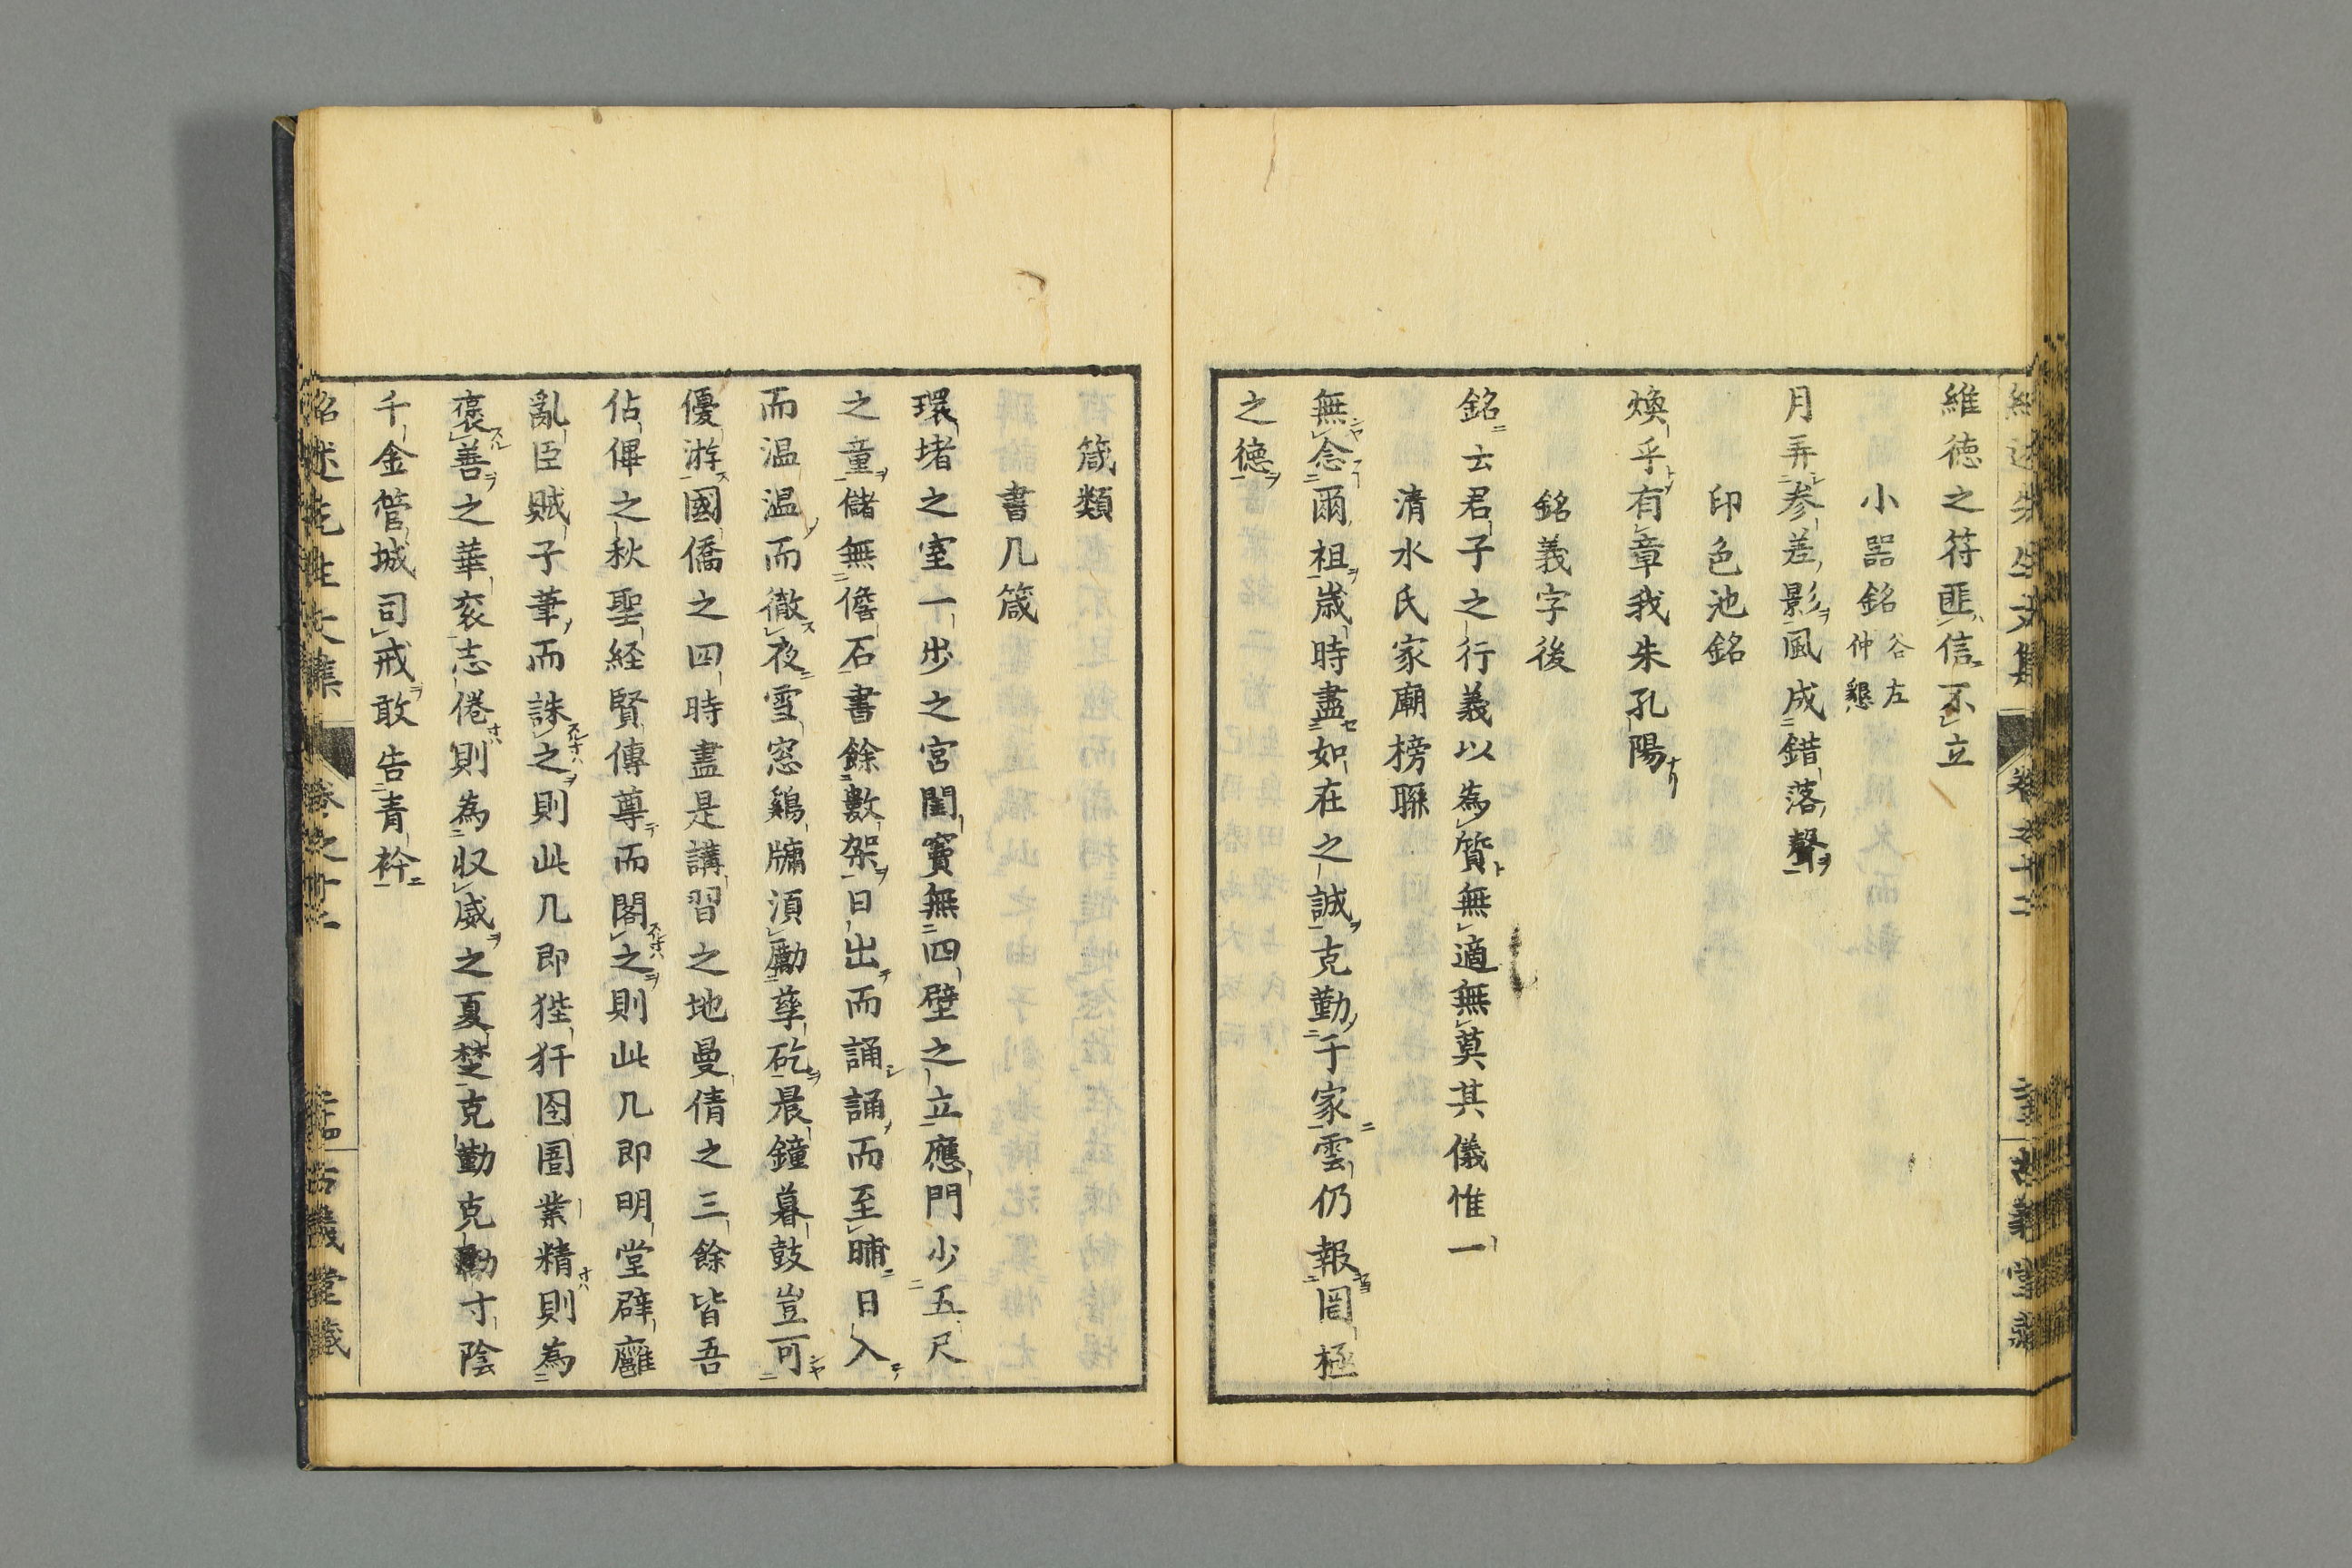 維德之符匪信不立
小器銘 谷左仲懇
月弄參差影風成錯落聲
印色池銘
煥乎有章我朱孔陽
銘義字後
銘云君子之行義以為質無適無莫其儀惟一
清水氏家廟榜聯
無念爾祖歲時盡如在之誠克勤于家雲仍報罔極
之德
箴類
書几箴
環堵之室一步之宮閨竇無四壁之立應門少五尺
之童儲無儋石書餘數架日出而誦誦而至晡日入
而温温而徹夜雪窓鷄牖湏勵孳矻晨鐘暮鼓豈可
優游國僑之四時盡是講習之地曼倩之三餘皆吾
佔俾之秋聖經賢傳蓴而閣之則此几即明堂辟廱
亂臣賊子筆而誅之則此几即狴犴囹圄業精則為
褒善之華衮志倦則為收威之夏楚克勤克勵寸陰
千金管城司戒敢告青衿
紹述先生文集 卷之十二 古義堂藏